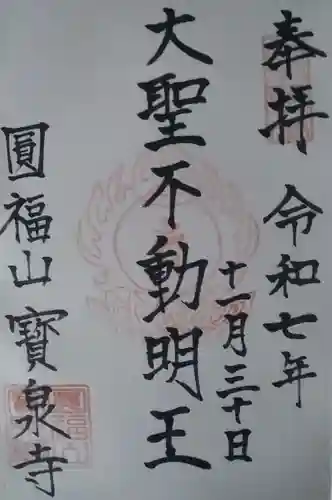 奉拝
令和七年
十一月三十日
大聖不動明王
圓福山
寶泉寺